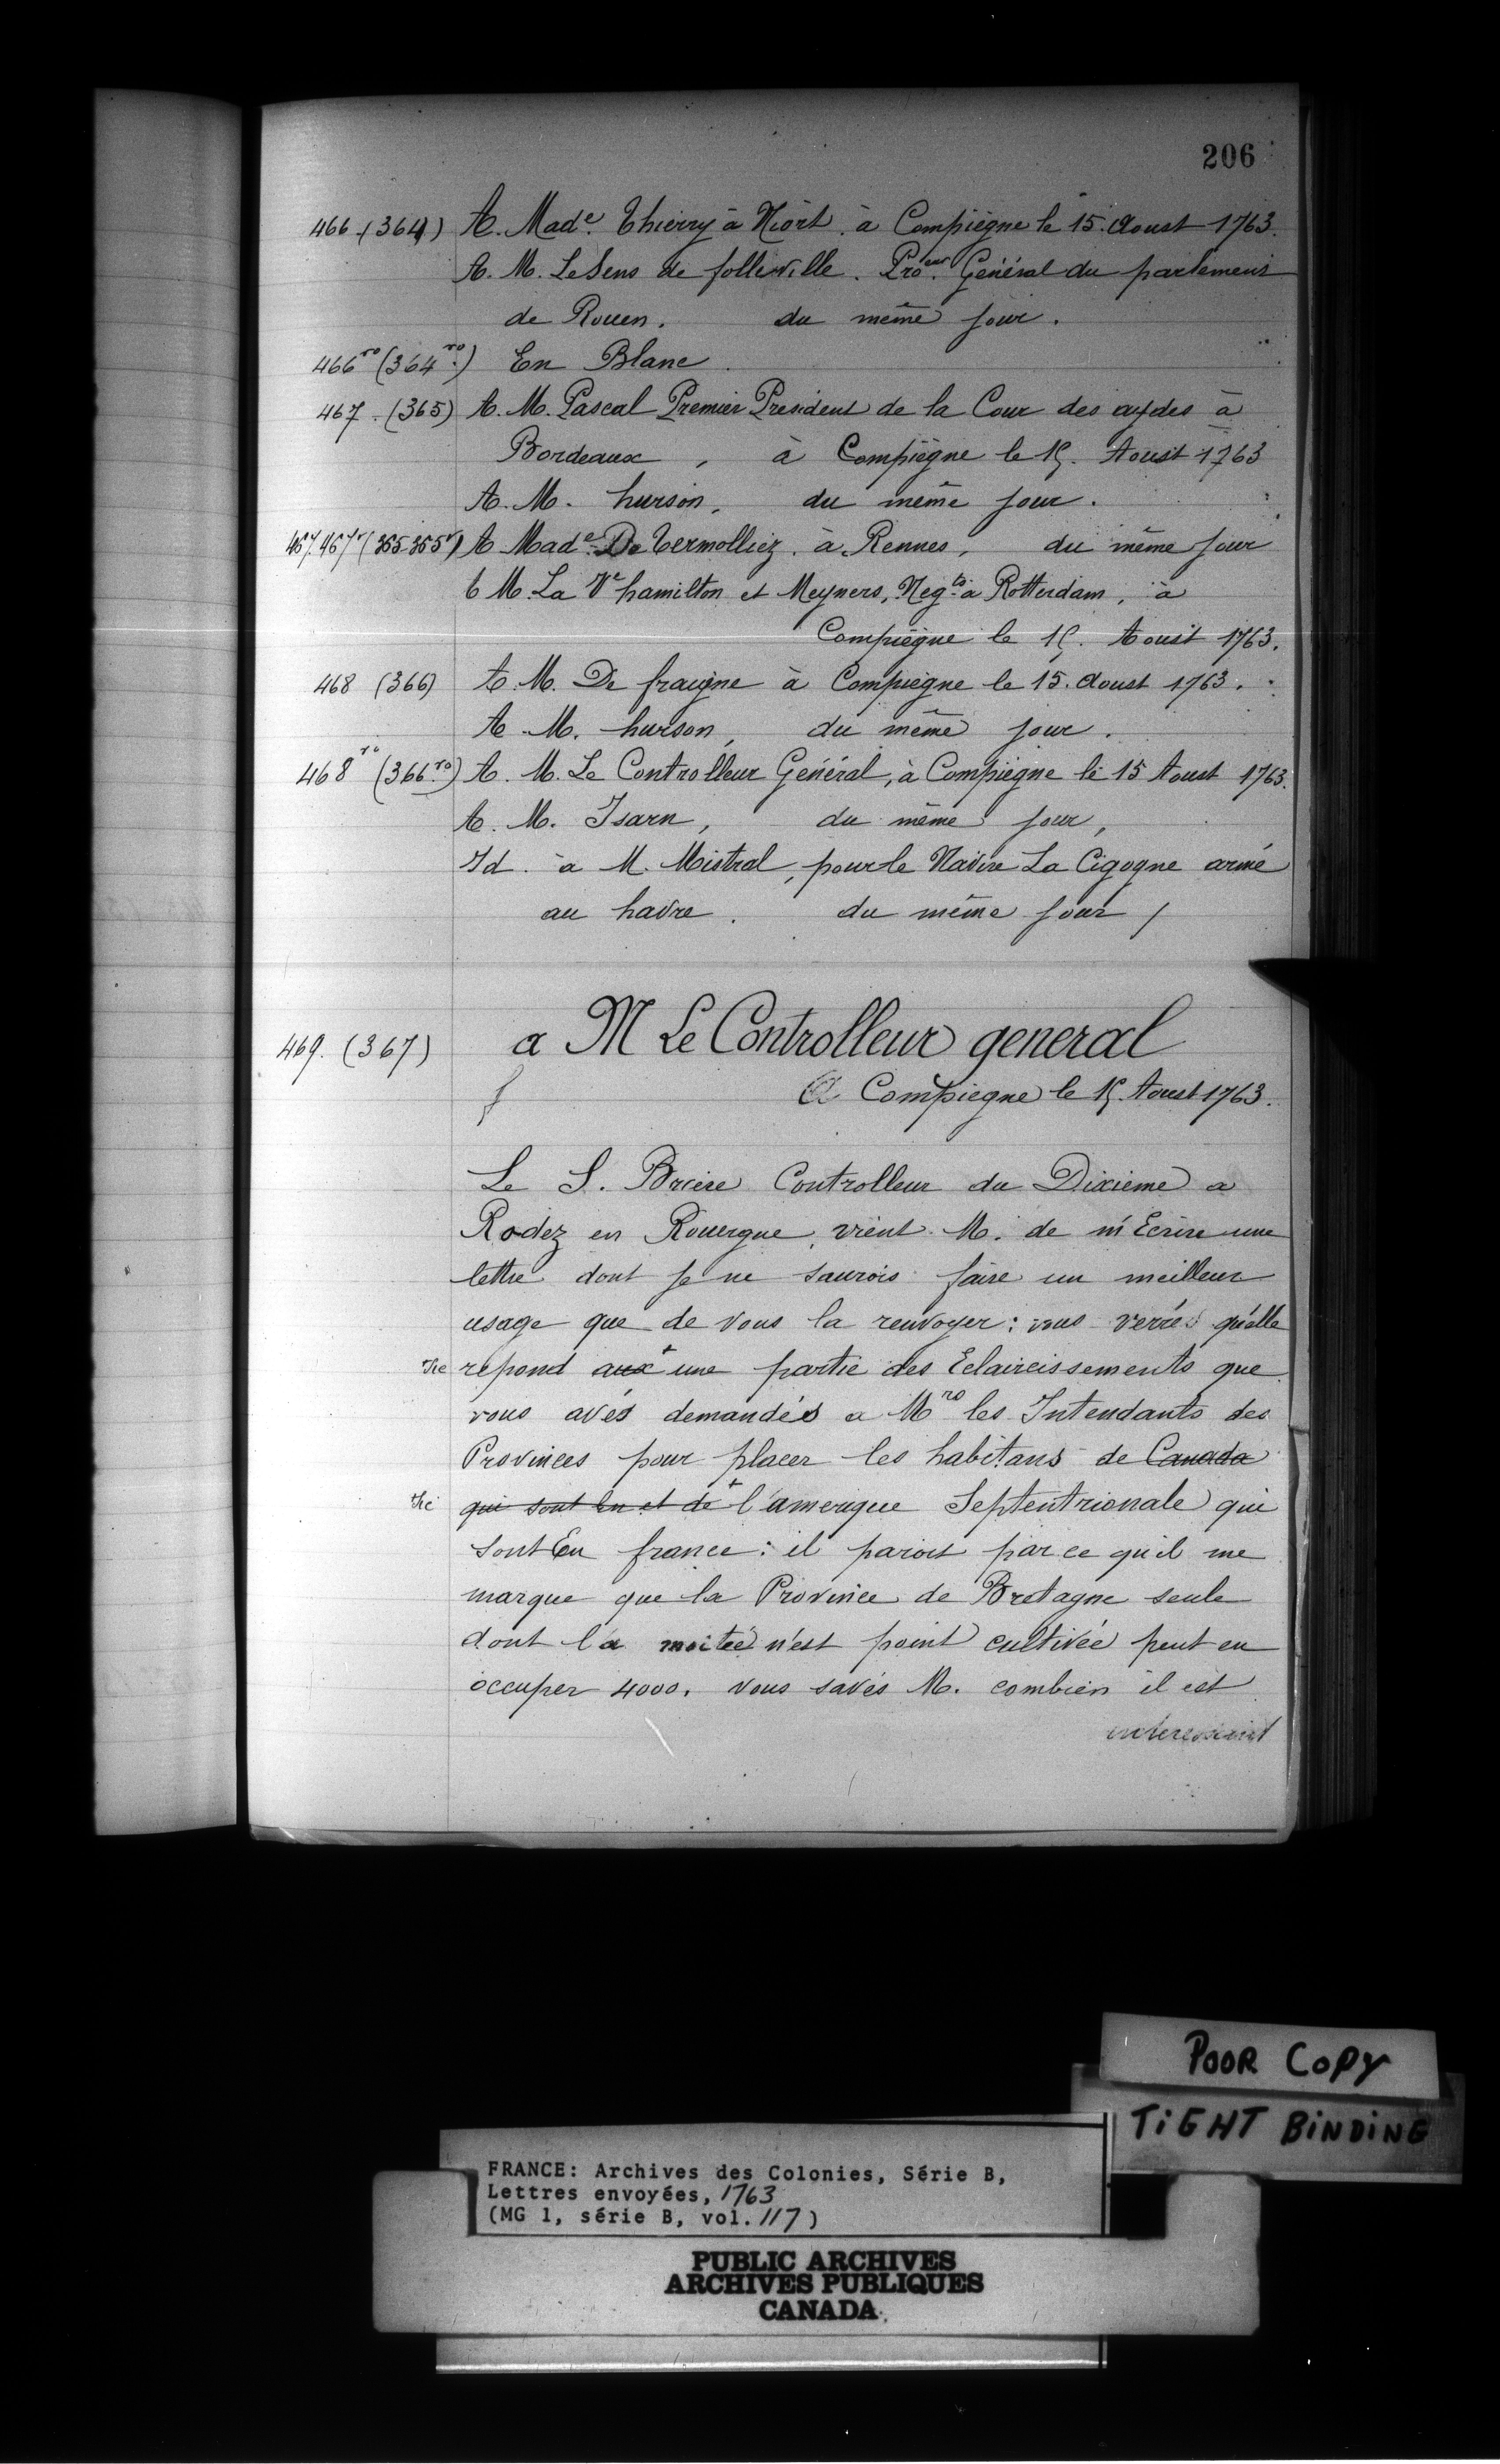 206
466 (364) A. Made Thierry à Niort. à Compiègne le 15. Aoust 1763.
A. M. LeSens de folleville. Proeur Général du parlement
de Rouen. du même jour.
466ro (364ro) En Blanc.
467. (365) A. M. Pascal Premier President de la Cour des aydes à
Bordeaux, à Compiègne le 15. Aoust 1763
A. M. hurson, du même jour.
A Made De Termolliez. à Rennes, du même jour
A M. La Ve hamilton et Meyners, Negts à Rotterdam, à
Compiègne le 15. Aoust 1763.
468 (366) A. M. De fraigne à Compiegne le 15. Aoust 1763.
A. M. hurson, du même jour.
468ro (366ro) A. M. Le Controlleur Général, à Compiègne le 15 Aoust 1763.
A. M. Isarn, du même jour,
Id. à M. Mistral, pour le Navire La Cigogne armé
au havre. du même jour /
469. (367) a M Le Controlleur general
A Compiegne le 15. Aoust 1763.
Le S. Briere Controlleur du Dixieme a
Rodez en Rouergue, vient M. de m'Ecrire une
lettre dont je ne saurois faire un meilleur
usage que de vous la renvoyer : vous verrés qu'elle
sic repond aux + une partie des Eclaircissements que
vous avés demandés a Mrs les Intendants des
Provinces pour placer les habitans de Canada
sic qui sont En et de + l'amerique Septentrionale qui
sont En france : il paroit par ce qu'il me
marque que la Province de Bretagne seule
dont la moitée n'est point cultivée peut en
occuper 4000. vous savés M. combien il est
interessant
POOR COPY
TIGHT BINDING
FRANCE: Archives des Colonies, Série B,
Lettres envoyées, 1763
(MG 1, série B, vol. 117)
PUBLIC ARCHIVES
ARCHIVES PUBLIQUES
CANADA